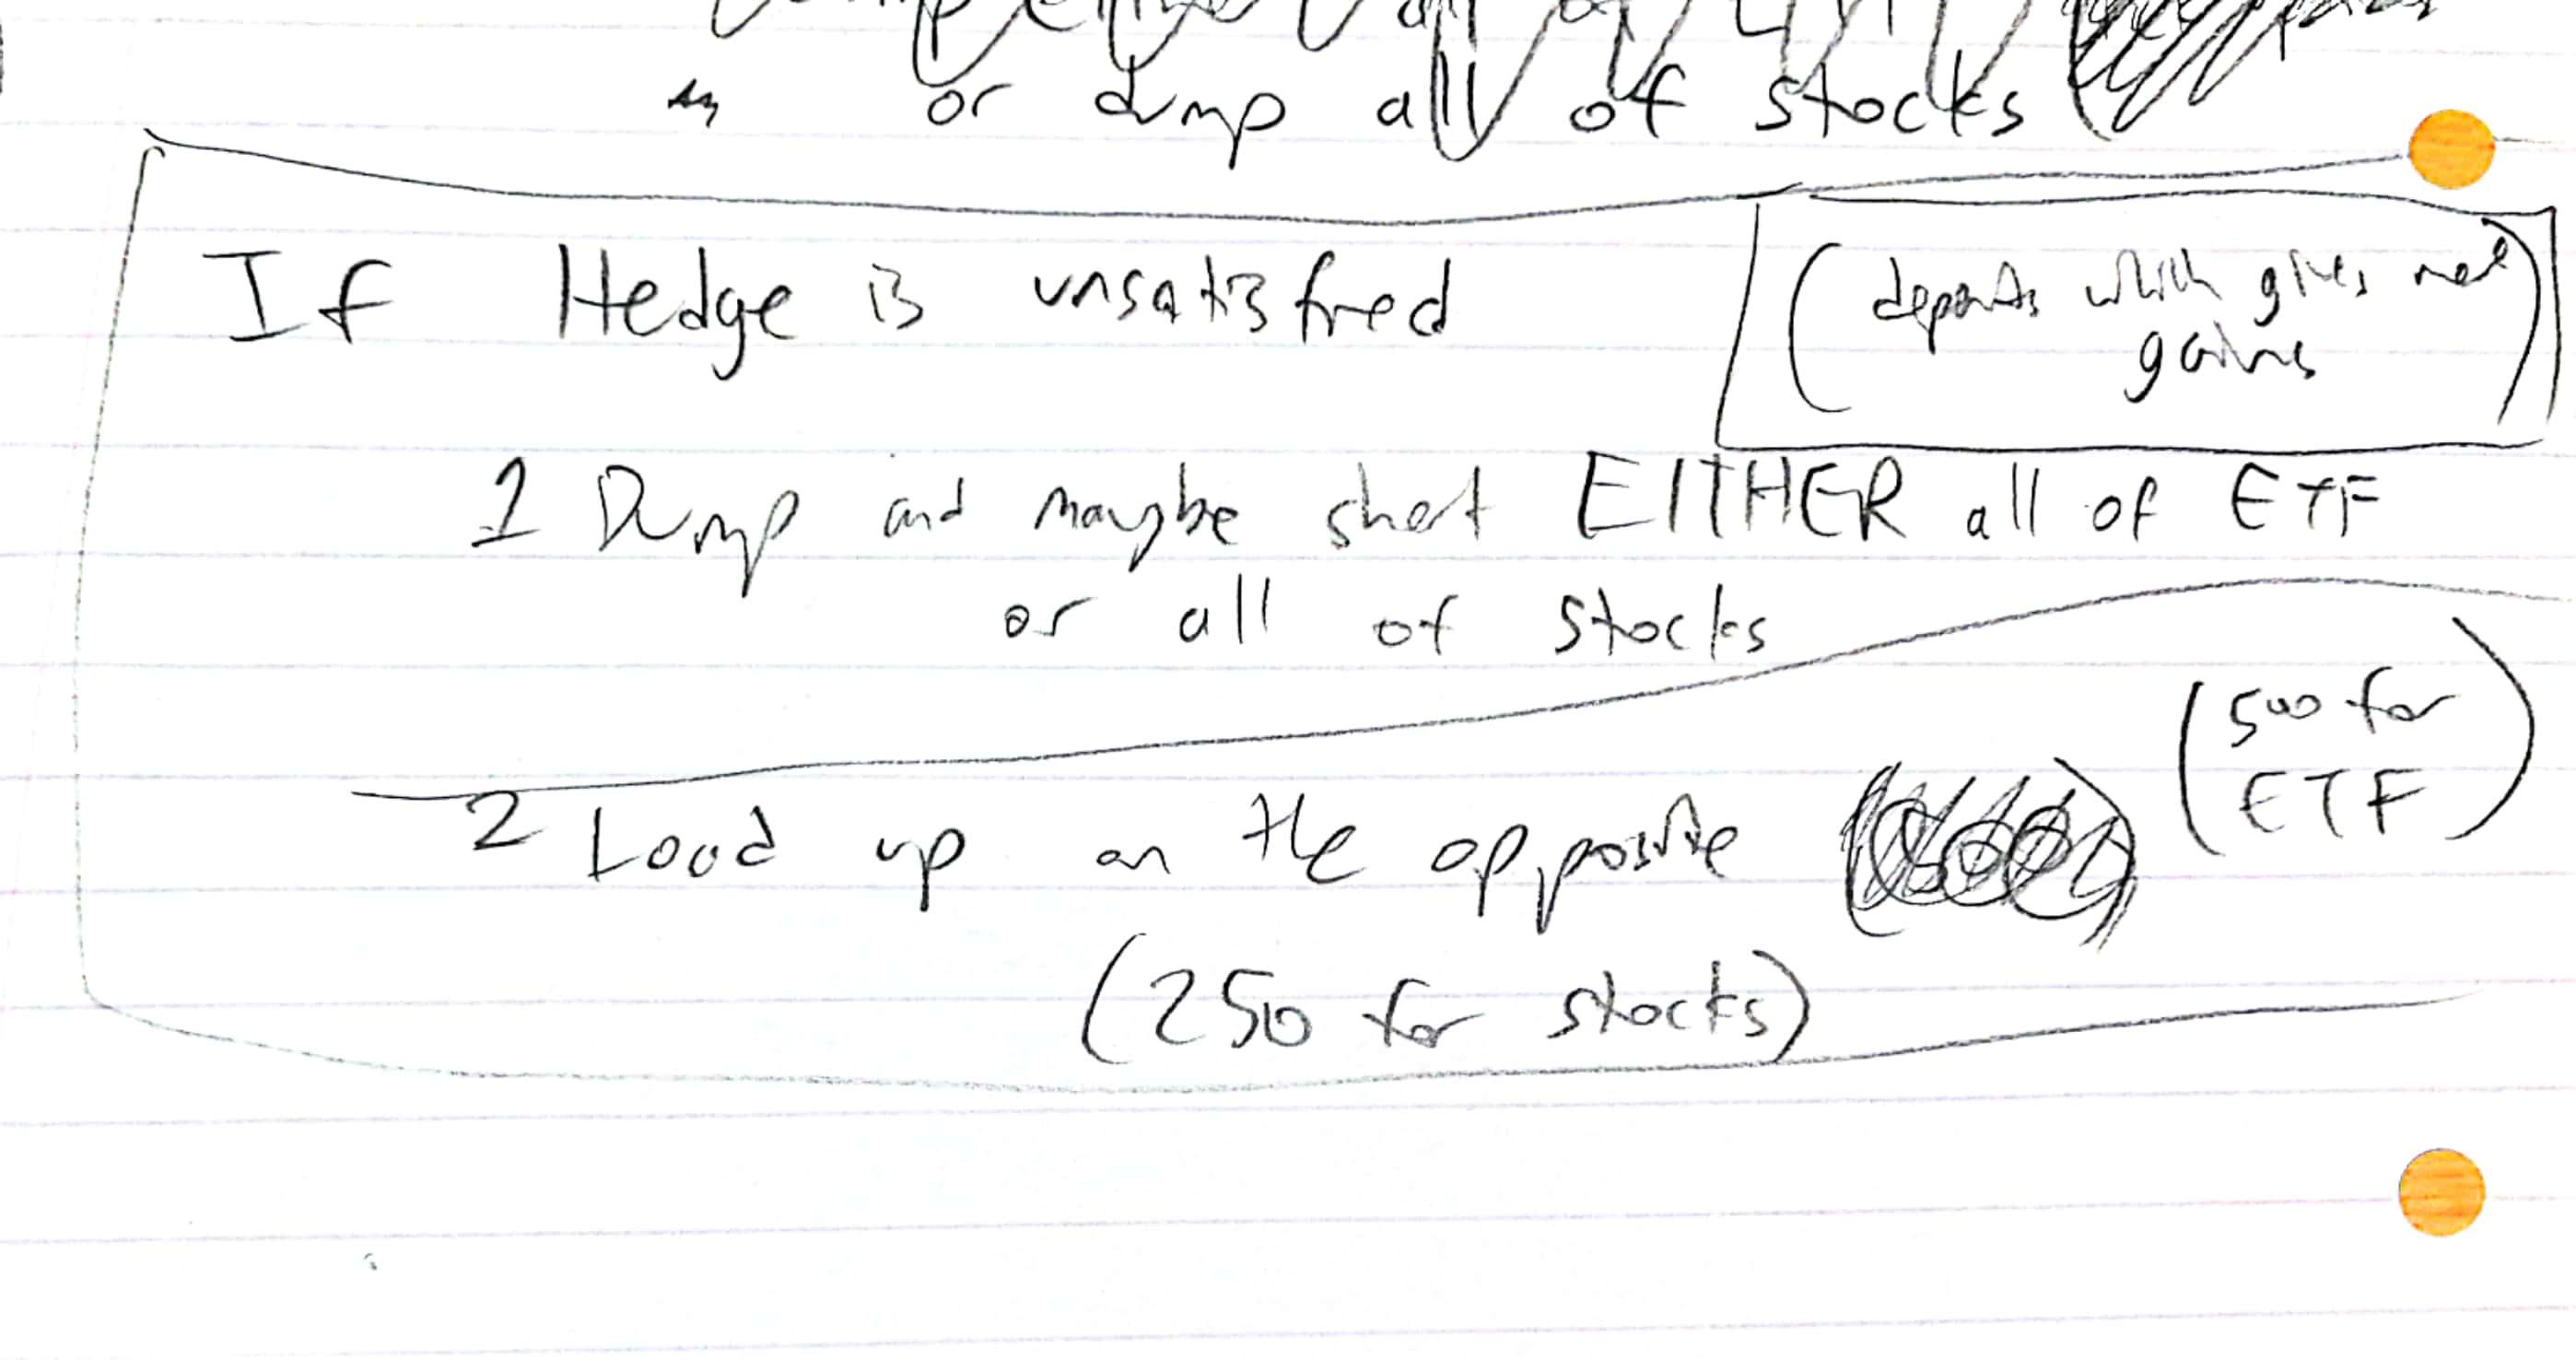 or dump all of stocks
If Hedge is unsatisfied
(depends which gives more
gains)
1 Dump and maybe short EITHER all of ETF
or all of stocks
2 Load up on the opposite
(500 for
ETF)
(250 for stocks)